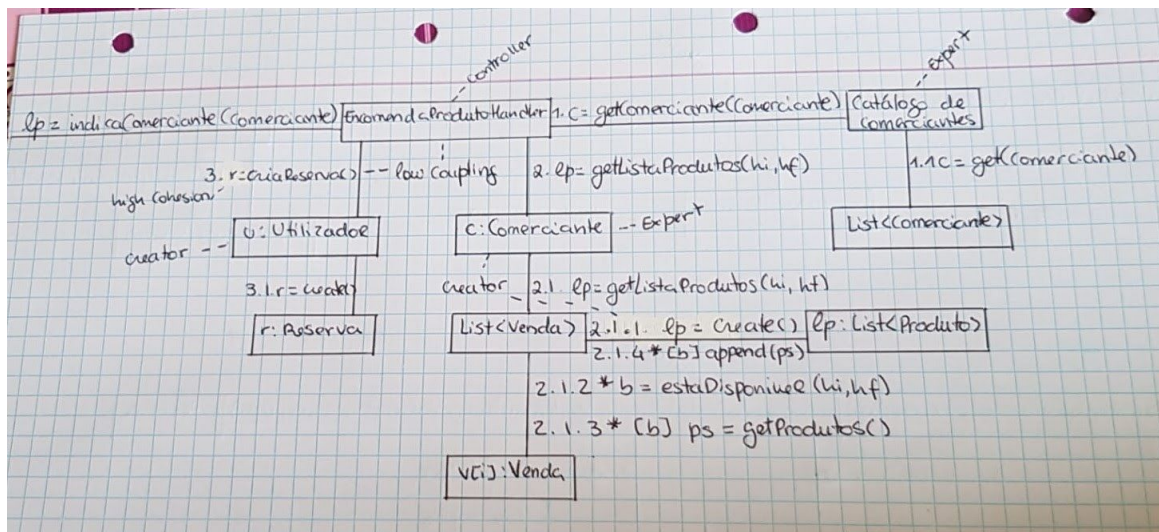 controller
Expert
lp = indicaComerciante(comerciante) EncomendaProdutoHandler 1. C = getComerciante(Comerciante) Catálogo de
comerciantes
3. r=criaReserva() -- low coupling 2. lp = getListaProdutos(hi, hf) 1.1 C = get(comerciante)
high cohesion
creator -- U: Utilizador C: Comerciante -- Expert List<Comerciante>
3.1. r= create() creator 2.1 lp = getListaProdutos(hi, hf)
r: Reserva List<Venda> 2.1.1. lp = create() lp: List<Produto>
2.1.4 * [b] append(ps)
2.1.2 * b = estaDisponivel (hi, hf)
2.1.3 * [b] ps = getProdutos()
v[i]: Venda